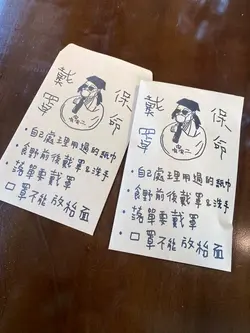 戴
罩
• 自己處理用過的紙巾
• 食野前後戴罩&洗手
• 落單要戴罩
• 口罩不能放枱面
戴 保
罩 命
• 自己處理用過的紙巾
• 食野前後戴罩&洗手
• 落單要戴罩
• 口罩不能放枱面